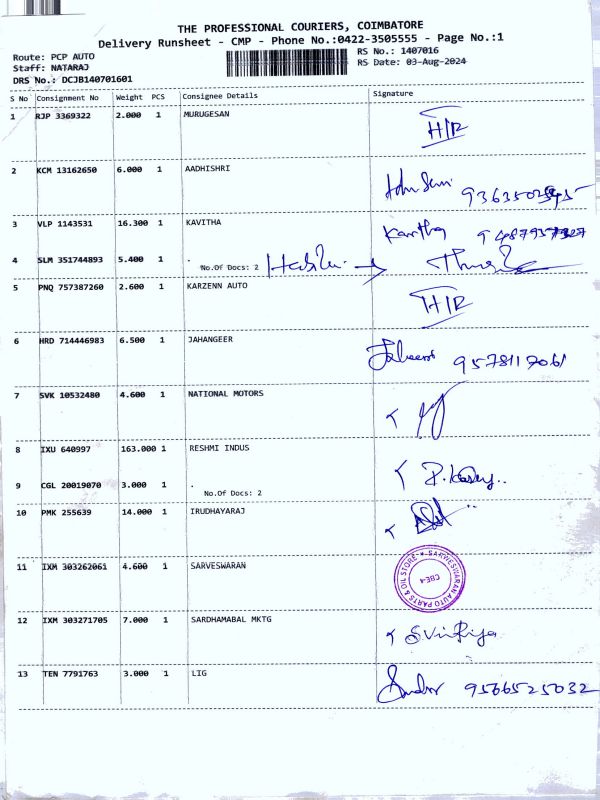 THE PROFESSIONAL COURIERS, COIMBATORE
Delivery Runsheet - CMP - Phone No.:0422-3505555 - Page No.:1
Route: PCP AUTO
RS No.: 1407016
Staff: NATARAJ
RS Date: 03-Aug-2024
DRS No.: DCJB140701601
S No Consignment No Weight PCS Consignee Details Signature
1 RJP 3369322 2.000 1 MURUGESAN H/R
2 KCM 13162650 6.000 1 AADHISHRI
3 VLP 1143531 16.300 1 KAVITHA Kavitha
4 SLM 351744893 5.400 1 .
No.Of Docs: 2
5 PNQ 757387260 2.600 1 KARZENN AUTO H/R
6 HRD 714446983 6.500 1 JAHANGEER 9578117061
7 SVK 10532480 4.600 1 NATIONAL MOTORS
8 IXU 640997 163.000 1 RESHMI INDUS
9 CGL 20019070 3.000 1 .
No.Of Docs: 2
10 PMK 255639 14.000 1 IRUDHAYARAJ
11 IXM 303262061 4.600 1 SARVESWARAN SARWESWARAN AUTO PARTS & OIL STORE CBE-4
12 IXM 303271705 7.000 1 SARDHAMABAL MKTG
13 TEN 7791763 3.000 1 LIG 9566525032